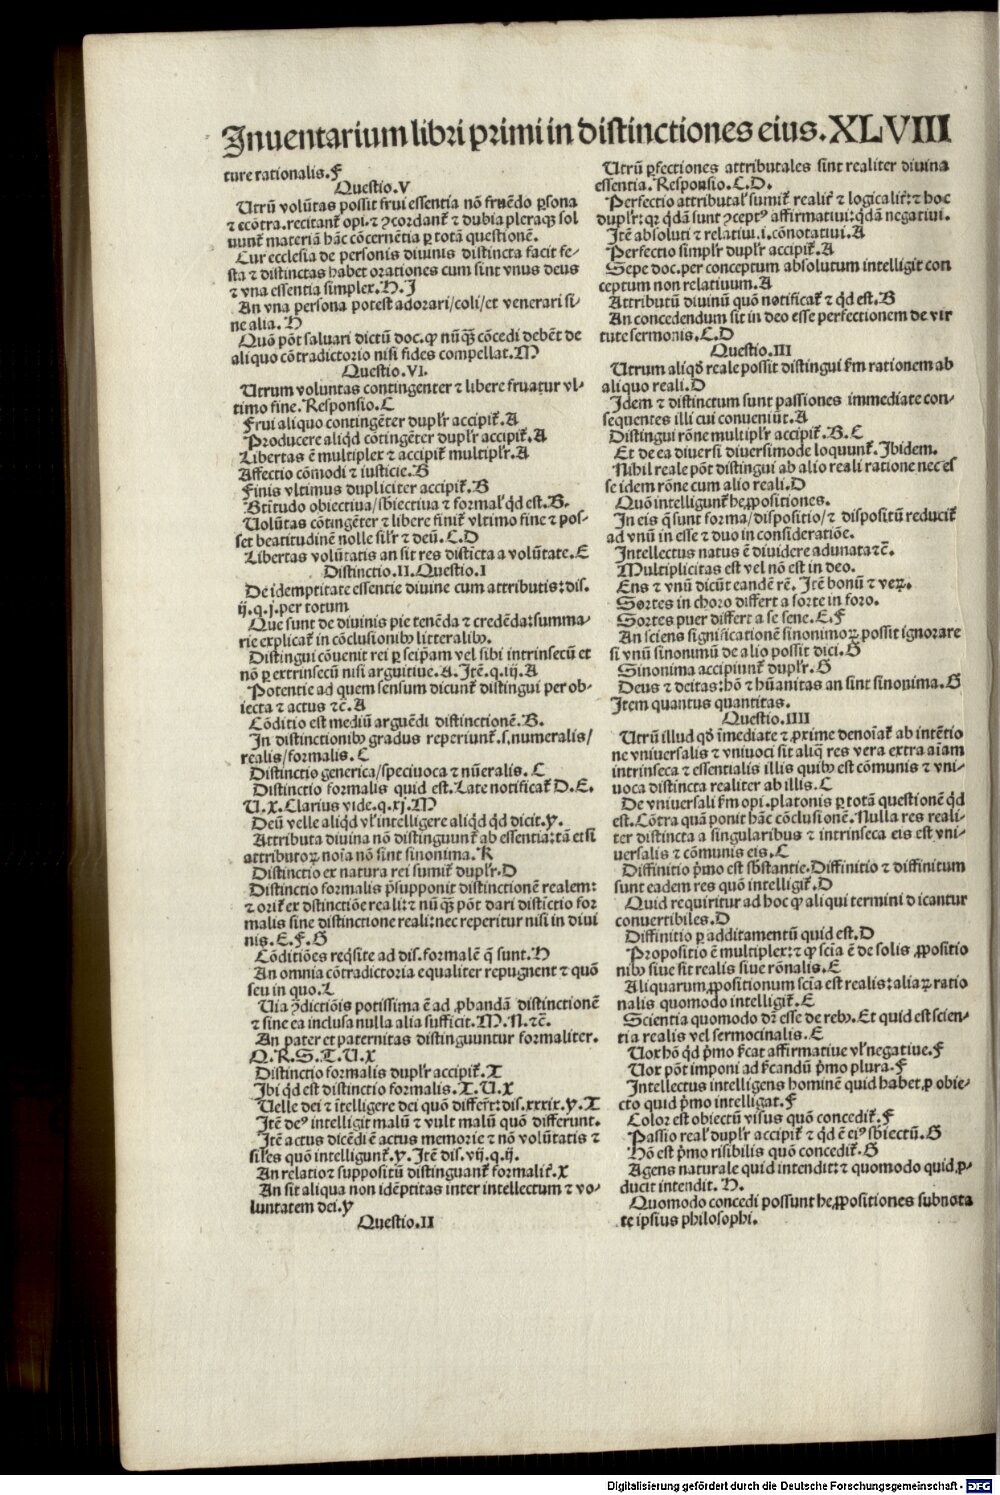 Inuentarium libri primi in distinctiones eius. XLVIII
ture rationalis. F
Questio. V
Utrũ volũtas possit frui essentia nõ fruẽdo ꝑsona
⁊ ecõtra. recitant̃ opi. ⁊ ꝯcordant̃ ⁊ dubia pleraqꝫ sol
uunt̃ materiã hãc cõcernẽtia ꝑ totã questionẽ.
Cur ecclesia de personis diuinis distincta facit fe-
sta ⁊ distinctas habet orationes cum sint vnus deus
⁊ vna essentia simplex. H. I
An vna persona potest adorari/coli/et venerari si-
ne alia. H
Quõ põt saluari dictũ doc. ꝙ nũqꝫ̃ cõcedi debẽt de
aliquo cõtradictorio nisi fides compellat. M
Questio. VI.
Utrum voluntas contingenter ⁊ libere fruatur vl-
timo fine. Responsio. C
Frui aliquo contingẽter duplr̃ accipit̃. A
Producere aliqd̃ cõtingẽter duplr̃ accipit̃. A
Libertas ẽ multiplex ⁊ accipit̃ multiplr̃. A
Affectio cõmodi ⁊ iusticie. B
Finis vltimus dupliciter accipit̃. B
Btĩtudo obiectiua/sb̃iectiua ⁊ formal̃ qd̃ est. B.
Uolũtas cõtingẽter ⁊ libere finit̃ vltimo fine ⁊ pos-
set beatitudinẽ nolle sil̃r ⁊ deũ. C. D
Libertas volũtatis an sit res distĩcta a volũtate. E
Distinctio. II. Questio. I
De idemptitate essentie diuine cum attributis: dis.
ij. q. j. per totum
Que sunt de diuinis pie tenẽda ⁊ credẽda: summa-
rie explicat̃ in cõclusionibꝰ litteralibꝰ.
Distingui cõuenit rei ꝑ seip̃am vel sibi intrinsecũ et
nõ ꝑ extrinsecũ nisi arguitiue. A. Itẽ. q. iij. A
Potentie ad quem sensum dicunt̃ distingui per ob-
iecta ⁊ actus ⁊c̃. A
Cõditio est mediũ arguẽdi distinctionẽ. B.
In distinctionibꝰ gradus reperiunt̃. s. numeralis/
realis/formalis. C
Distinctio generica/speciuoca ⁊ nũeralis. C
Distinctio formalis quid est. Late notificat̃ D. E.
U. X. Clarius vide. q. xj. M
Deũ velle aliqd̃ vl̃ intelligere aliqd̃ qd̃ dicit. y.
Attributa diuina nõ distinguunt̃ ab essentia: tã etsi
attributoꝝ noĩa nõ sint sinonima. K
Distinctio ex natura rei sumit̃ duplr̃. D
Distinctio formalis p̃supponit distinctionẽ realem:
⁊ orit̃ ex dstinctiõe reali: ⁊ nũqꝫ̃ põt dari distĩctio for
malis sine distinctione reali: nec reperitur nisi in diui
nis. E. F. G
Cõditiões req̃site ad dis. formalẽ q̃ sunt. H
An omnia cõtradictoria equaliter repugnent ⁊ quõ
seu in quo. L
Uia ꝯ̃dictiõis potissima ẽ ad ꝓbandã distinctionẽ
⁊ sine ea inclusa nulla alia sufficit. M. N. ⁊c̃.
An pater et paternitas distinguuntur formaliter.
Q. R. S. T. U. X
Distinctio formalis duplr̃ accipit̃. T
Ibi qd̃ est distinctio formalis. T. U. X
Uelle dei ⁊ ĩtelligere dei quõ differt̃: dis. xxxix. y. T
Itẽ deꝰ intelligit malũ ⁊ vult malũ quõ differunt.
Itẽ actus dicẽdi ẽ actus memorie ⁊ nõ volũtatis ⁊
sil̃es quõ intelligunt̃. y. Itẽ dis. vij. q. ij.
An relatio ⁊ suppositũ distinguant̃ formalit̃. X
An sit aliqua non idẽptitas inter intellectum ⁊ vo-
luntatem dei. y
Questio. II
Utrũ ꝑfectiones attributales sint realiter diuina
essentia. Responsio. C. D.
Perfectio attributal̃ sumit̃ realit̃ ⁊ logicalit̃: ⁊ hoc
duplr̃: qꝛ qd̃ã sunt ꝯceptꝰ affirmatiui: qd̃ã negatiui.
Itẽ absoluti ⁊ relatiui. i. cõnotatiui. A
Perfectio simplr̃ duplr̃ accipit̃. A
Sepe doc. per conceptum absolutum intelligit con
ceptum non relatiuum. A
Attributũ diuinũ quõ notificat̃ ⁊ qd̃ est. B
An concedendum sit in deo esse perfectionem de vir
tute sermonis. C. D
Questio. III
Utrum aliqd̃ reale possit distingui s̃m rationem ab
aliquo reali. D
Idem ⁊ distinctum sunt passiones immediate con-
sequentes illi cui conueniũt. A
Distingui rõne multiplr̃ accipit̃. B. C
Et de ea diuersi diuersimode loquunt̃. Ibidem.
Nihil reale põt distingui ab alio reali ratione nec es
se idem rõne cum alio reali. D
Quõ intelligunt̃ he ꝓpositiones.
In eis q̃ sunt forma/dispositio/⁊ dispositũ reducit̃
ad vnũ in esse ⁊ duo in consideratiõe.
Intellectus natus ẽ diuidere adunata ⁊c̃.
Multiplicitas est vel nõ est in deo.
Ens ⁊ vnũ dicũt eandẽ rẽ. Itẽ bonũ ⁊ veꝝ.
Sortes in choro differt a sorte in foro.
Sortes puer differt a se sene. E. F
An sciens significationẽ sinonimoꝝ possit ignorare
si vnũ sinonimũ de alio possit dici. G
Sinonima accipiunt̃ duplr̃. G
Deus ⁊ deitas: hõ ⁊ hũanitas an sint sinonima. G
Item quantus quantitas.
Questio. IIII
Utrũ illud qd̃ ĩmediate ⁊ ꝓxime denoĩat̃ ab intẽtio
ne vniuersalis ⁊ vniuoci sit aliq̃ res vera extra aĩam
intrinseca ⁊ essentialis illis quibꝰ est cõmunis ⁊ vni-
uoca distincta realiter ab illis. C
De vniuersali s̃m opi. platonis ꝑ totã questionẽ qd̃
est. Cõtra quã ponit hãc cõclusionẽ. Nulla res reali-
ter distincta a singularibus ⁊ intrinseca eis est vni-
uersalis ⁊ cõmunis eis. C
Diffinitio p̃mo est sb̃stantie. Diffinitio ⁊ diffinitum
sunt eadem res quõ intelligit̃. D
Quid requiritur ad hoc ꝙ aliqui termini dicantur
conuertibiles. D
Diffinitio ꝑ additamentũ quid est. D
Propositio ẽ multiplex: ⁊ ꝙ scĩa ẽ de solis ꝓpositio
nibꝰ siue sit realis siue rõnalis. E
Aliquarum ꝓpositionum scĩa est realis: aliaꝝ ratio
nalis quomodo intelligit̃. E
Scientia quomodo dr̃ esse de rebꝰ. Et quid est scien-
tia realis vel sermocinalis. E
Uox hõ qd̃ p̃mo s̃cat affirmatiue vl̃ negatiue. F
Uox põt imponi ad s̃candũ p̃mo plura. F
Intellectus intelligens hominẽ quid habet ꝓ obie-
cto quid p̃mo intelligat. F
Color est obiectũ visus quõ concedit̃. F
Passio real̃ duplr̃ accipit̃ ⁊ qd̃ ẽ eiꝰ sb̃iectũ. G
Hõ est p̃mo risibilis quõ concedit̃. G
Agens naturale quid intendit: ⁊ quomodo quid ꝓ-
ducit intendit. H.
Quomodo concedi possunt he ꝓpositiones subnota
te ipsius philosophi.
Digitalisierung gefördert durch die Deutsche Forschungsgemeinschaft - DFG